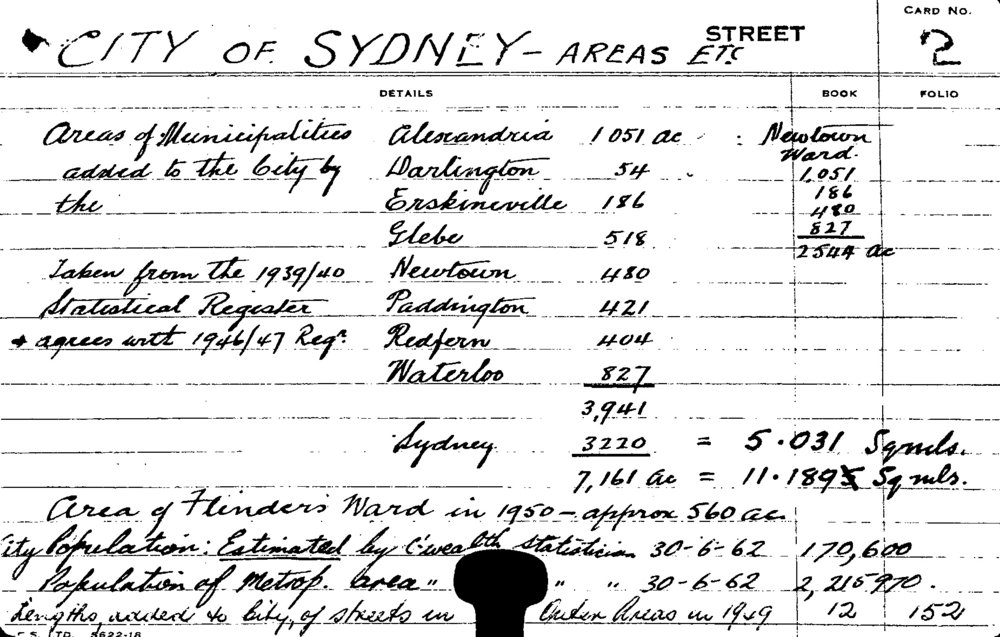 CARD No.
CITY OF SYDNEY - AREAS ETC STREET 2
DETAILS BOOK FOLIO
Areas of Municipalities Alexandria 1051 ac Newtown
Ward.
added to the City by Darlington 54 1,051
the Erskineville 186 186
480
Glebe 518 827
2544 ac
Taken from the 1939/40 Newtown 480
Statistical Register Paddington 421
+ agrees with 1946/47 Regr. Redfern 404
Waterloo 827
3,941
Sydney 3220 = 5.031 Sq mls.
7,161 ac = 11.189 Sq mls.
Area of Flinders Ward in 1950 - approx 560 ac.
City Population: Estimated by C'wealth Statistician 30-6-62 170,600
Population of Metrop. area " " " 30-6-62 2,215970.
Lengths added to City, of streets in Outer Areas in 1949 12 152
LTD. 5622-18